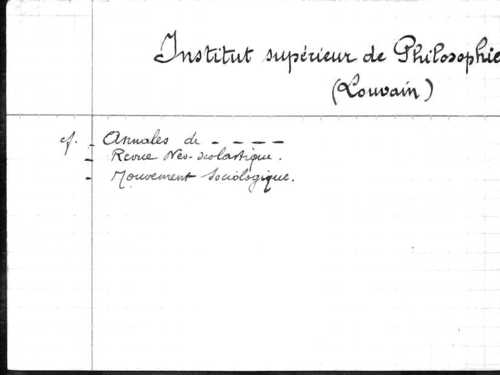 Institut supérieur de Philosophie
(Louvain)
cf. - Annales de - - - -
- Revue Néo-scolastique.
- Mouvement Sociologique.